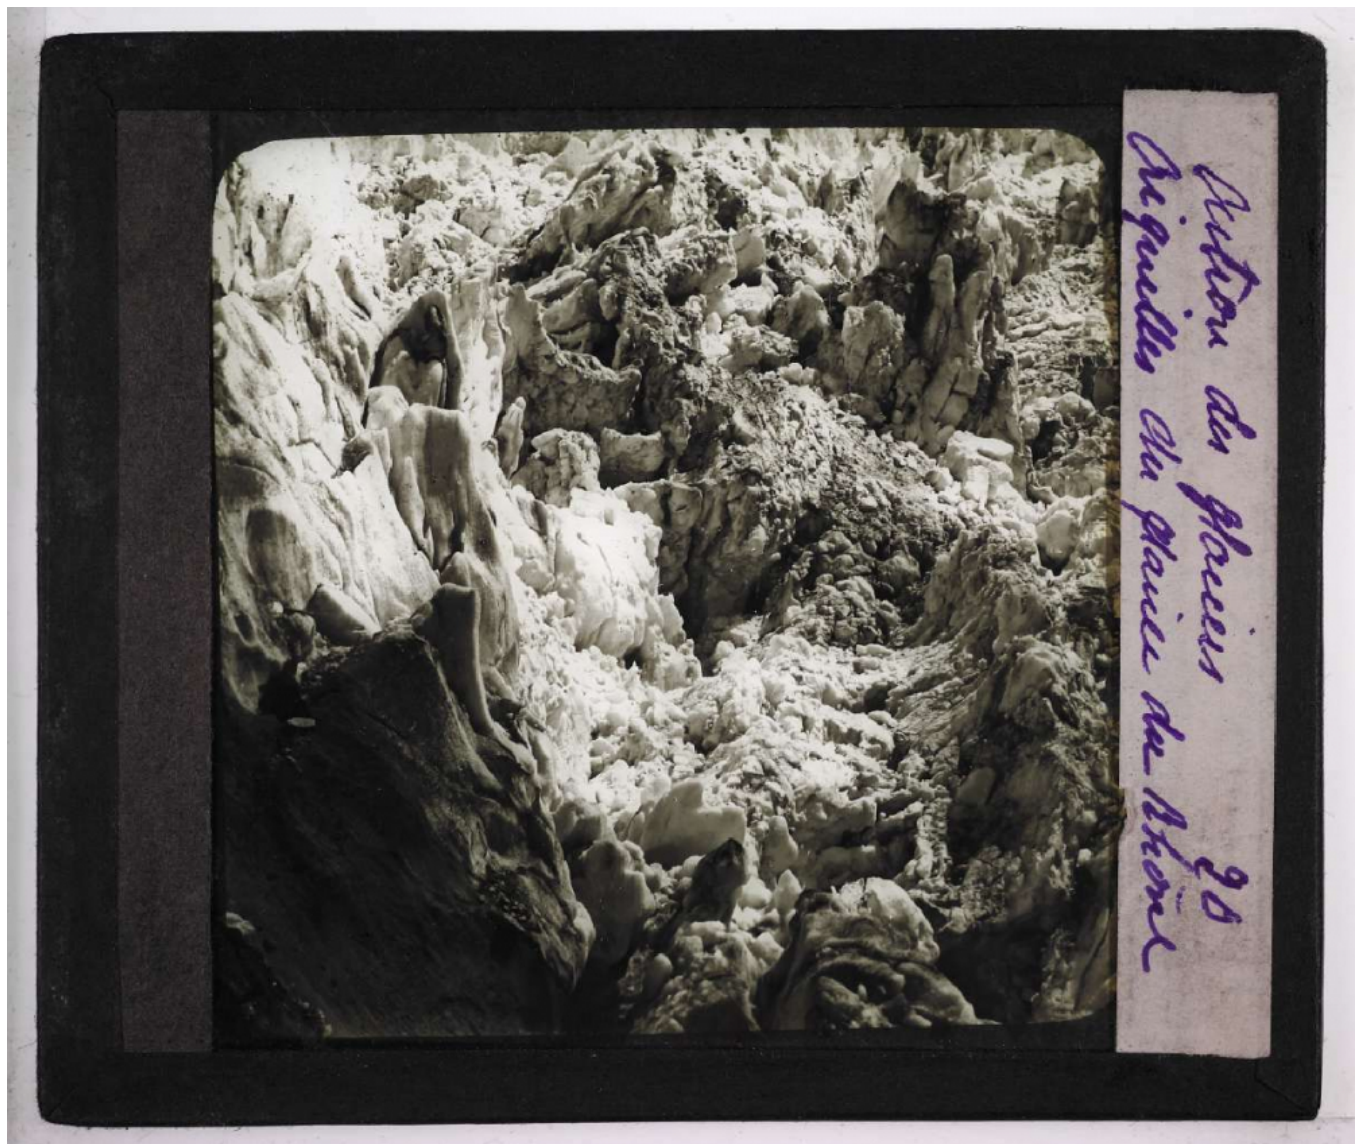 Action des glaciers 28
Aiguilles du glacier du Rhône